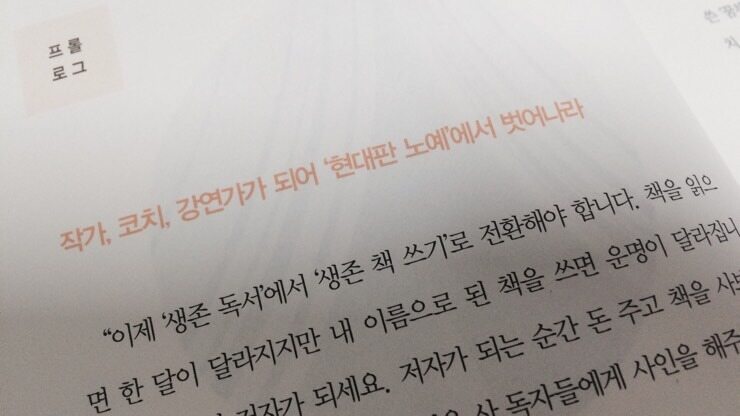 프롤
로그
작가, 코치, 강연가가 되어 ‘현대판 노예’에서 벗어나라
“이제 ‘생존 독서’에서 ‘생존 책 쓰기’로 전환해야 합니다. 책을 읽으
면 한 달이 달라지지만 내 이름으로 된 책을 쓰면 운명이 달라집니
저자가 되세요. 저자가 되는 순간 돈 주고 책을 사보
산 독자들에게 사인을 해주
쓴